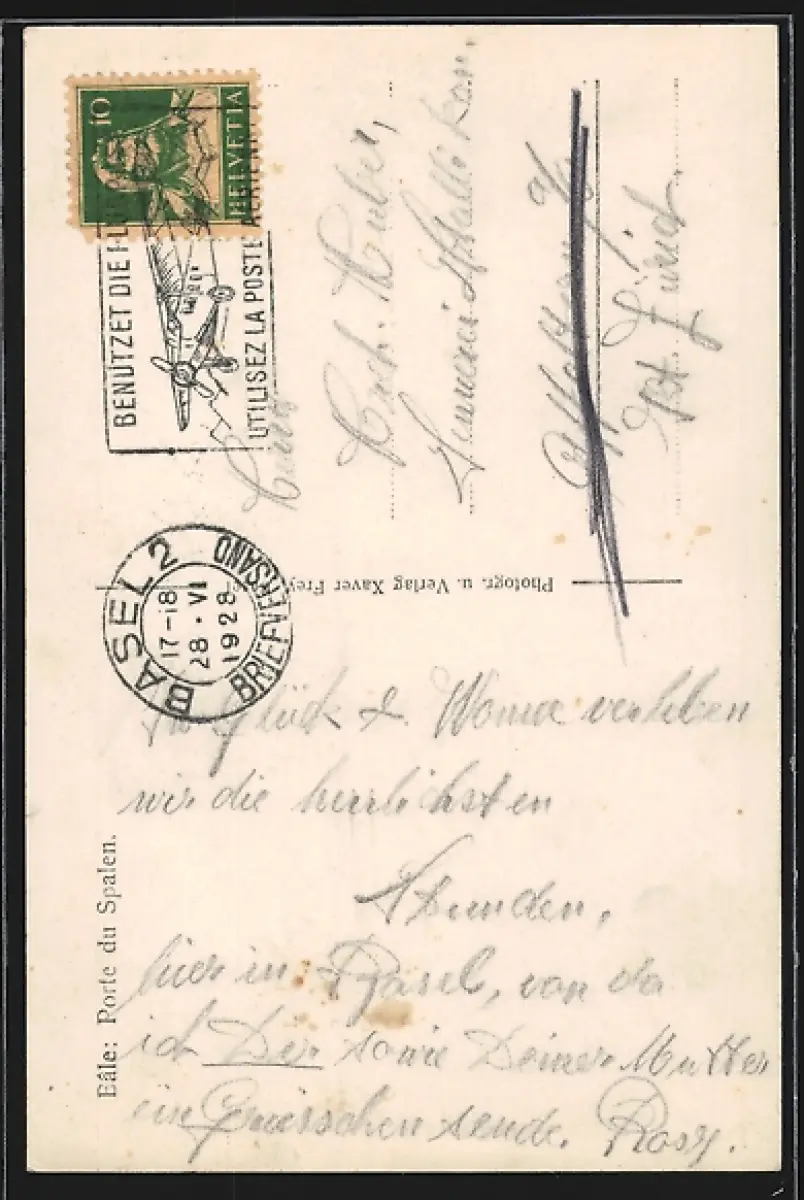 10
HELVETIA
BENÜTZET DIE FLU
UTILISEZ LA POSTE AÉRIENNE
BASEL 2
17-18
28·VI
1928
BRIEFVERSAND
Huber,
Affoltern
Kt. Zürich.
Photogr. u. Verlag Xaver Frey
Bâle: Porte du Spalen.
In Glück & Wonne verleben
wir die herrlichsten
Stunden,
hier in Basel, von da
ich Dir sowie Deiner Mutter
ein Grüsschen sende. Rosy.